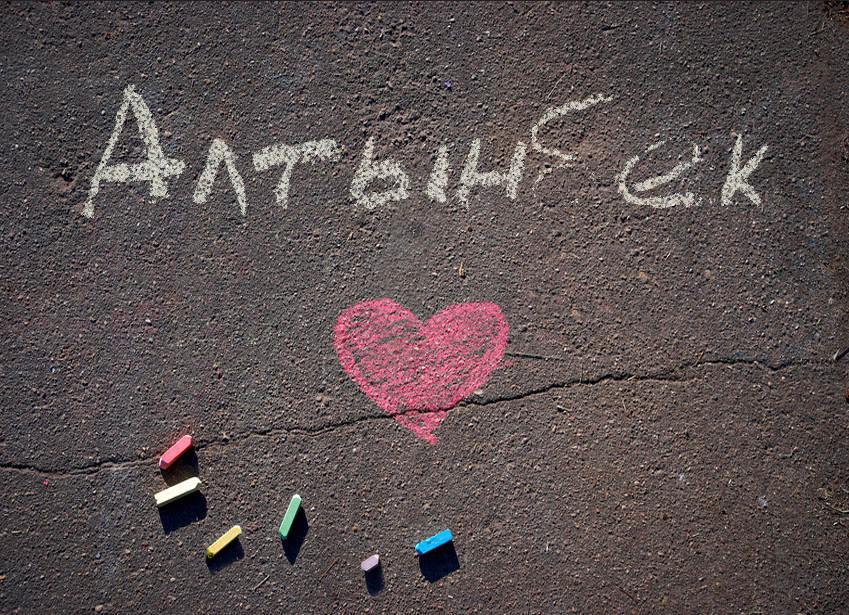 Алтынбек